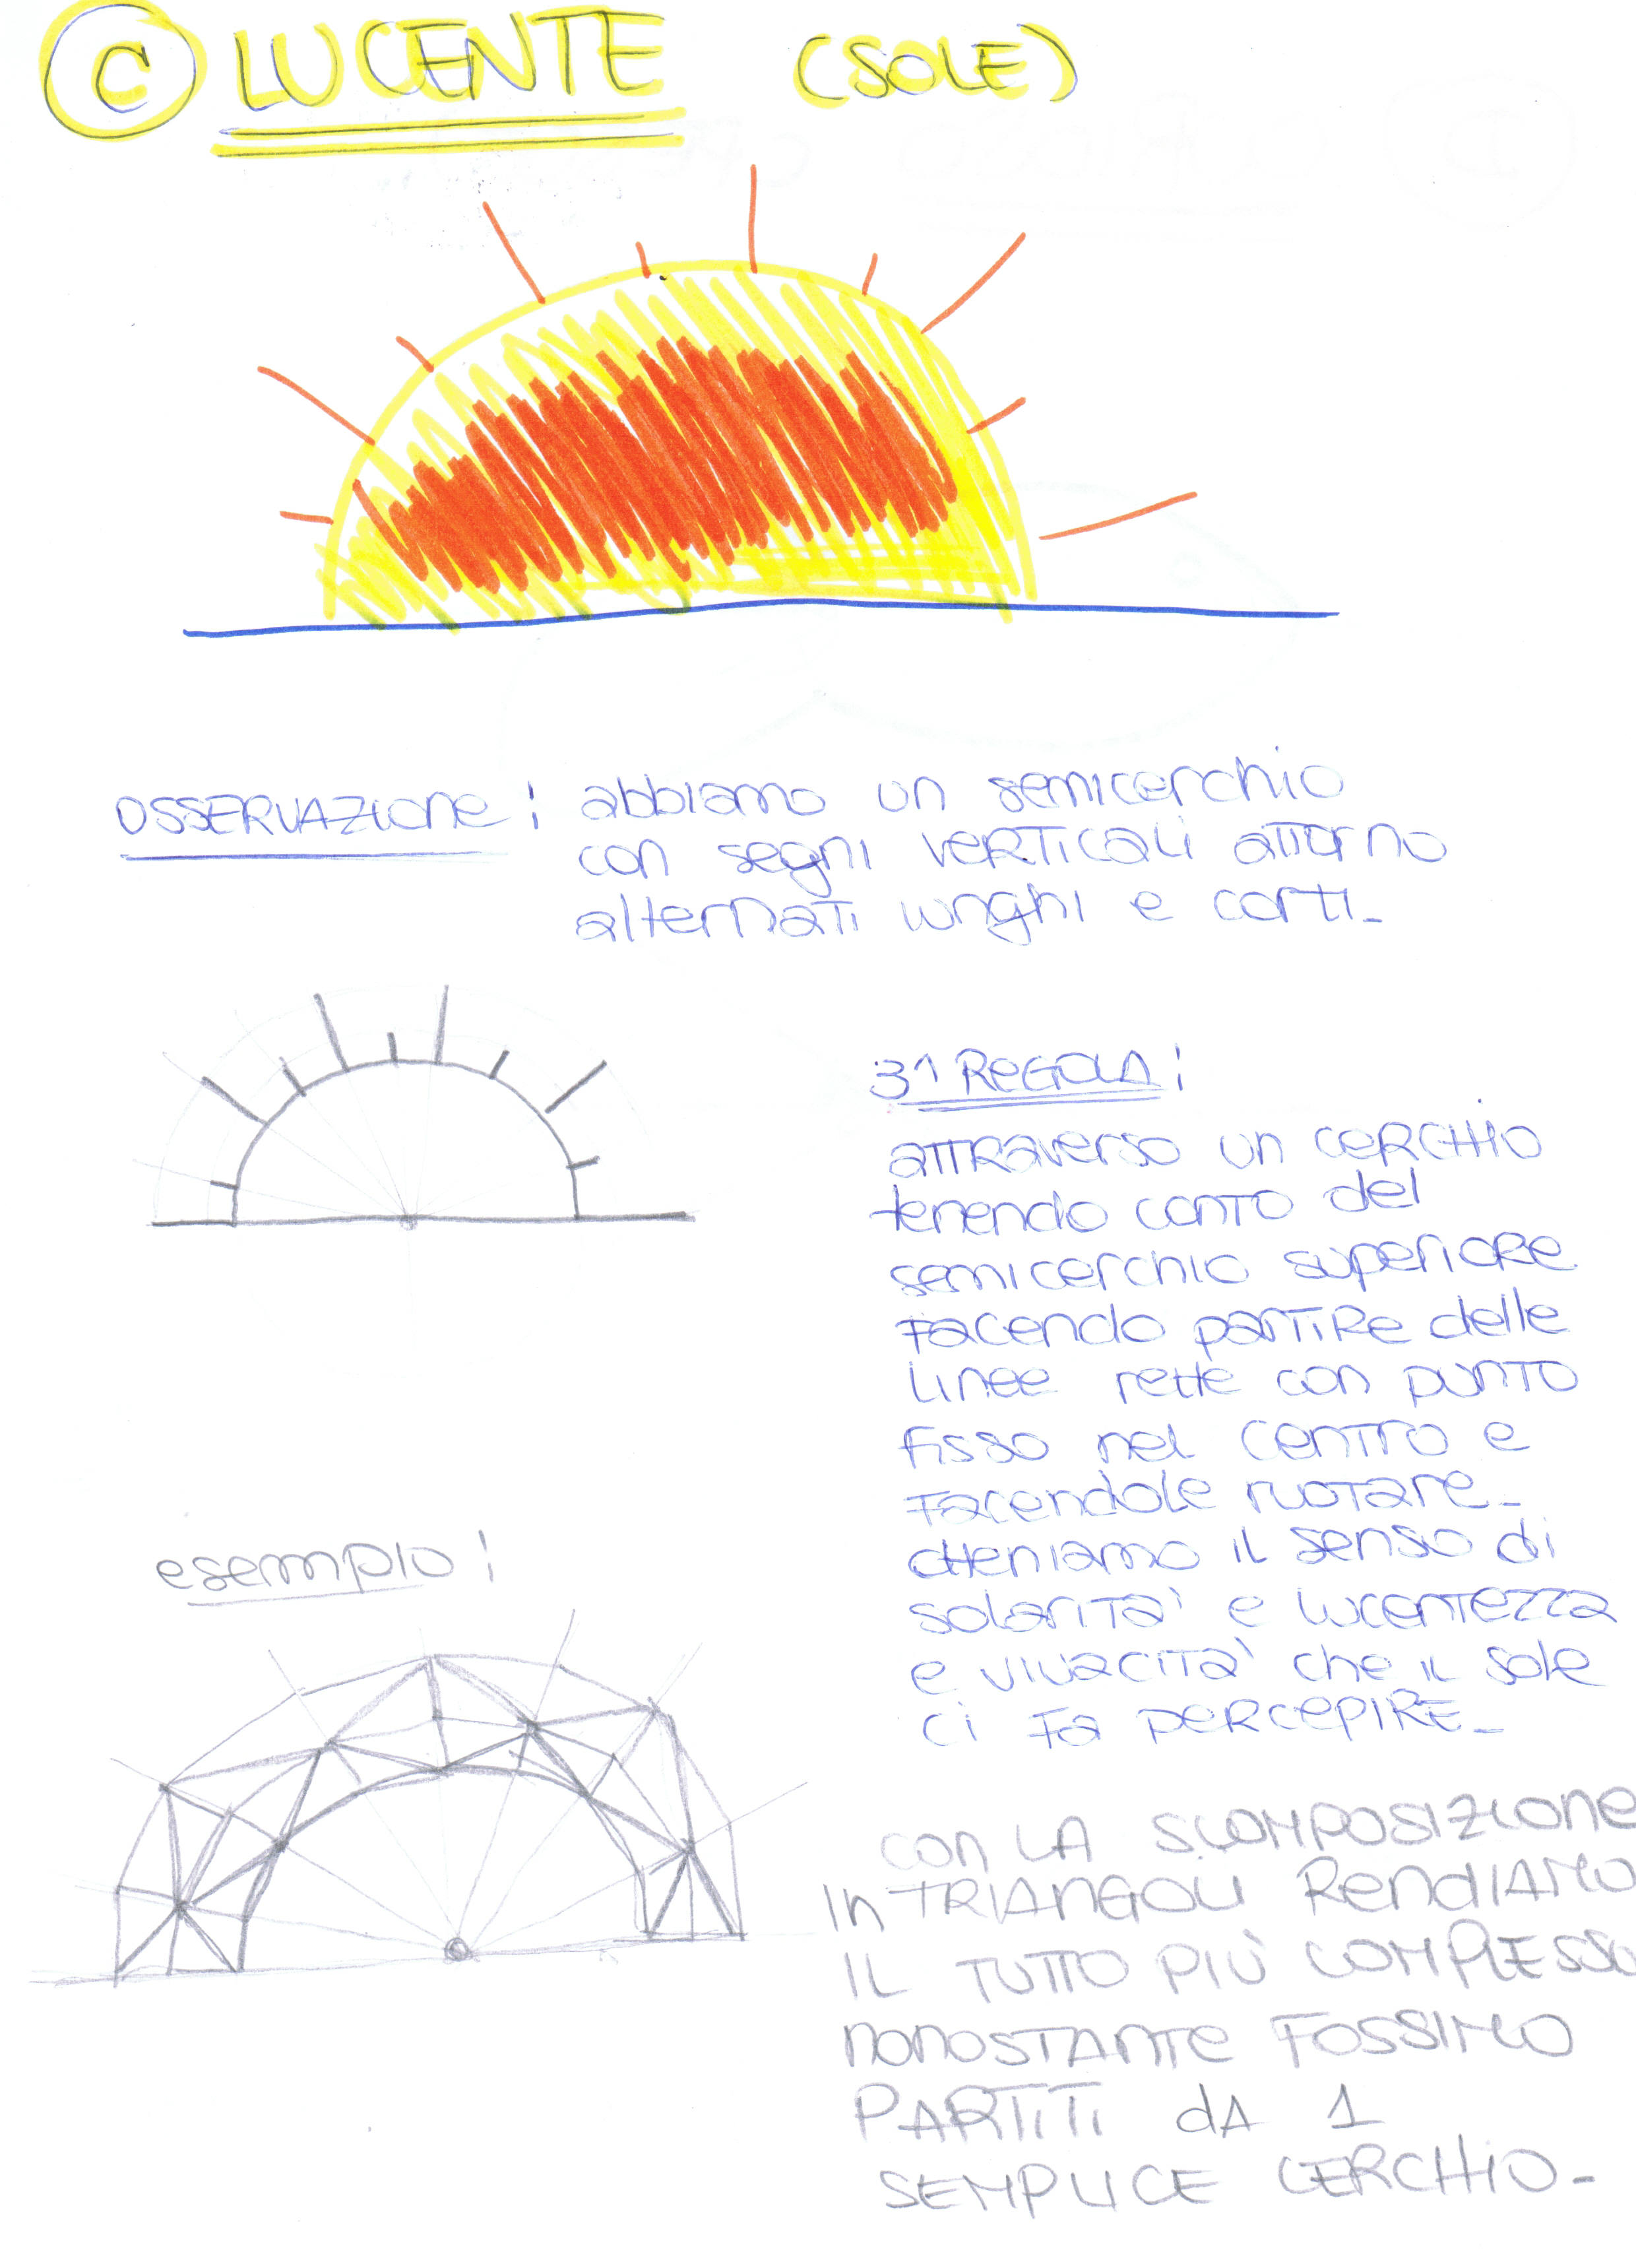 C LUCENTE (SOLE)
OSSERVAZIONE: abbiamo un semicerchio
con segni VERTICALI attorno
alternati lunghi e corti_
3^ REGOLA:
ATTRAVERSO un CERCHIO
tenendo conTO del
semicerchio superiORE
facendo partire delle
linee rette con punTO
fisso nel CENTRO e
facendole ruotare_
otteniamo il senso di
solarità e lucentezza
e VIVACITÀ che il sole
ci fa PERCEPIRE_
esempio:
con LA SCOMPOSIZIONE
In TRIANGOLI RendIAMO
IL TUTTO PIÙ COMPLESSO
nonoSTANTe FOSSIMO
PARTITI dA 1
SEMPLICE CERCHIO-